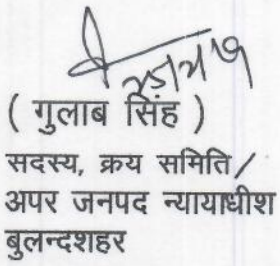 ( गुलाब सिंह )
सदस्य, क्रय समिति/
अपर जनपद न्यायाधीश
बुलन्दशहर